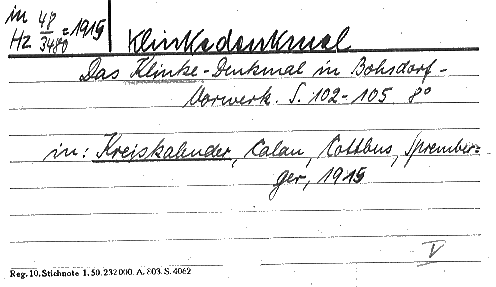 in 48
Hz 3480 = 1915 Klinkedenkmal
Das Klinke-Denkmal in Bohsdorf-
Vorwerk. S. 102-105 8°
in: Kreiskalender, Calau, Cottbus, Sprember-
ger, 1915
V
Reg. 10. Stichnote 1. 50. 232000. A. 803. S. 4062